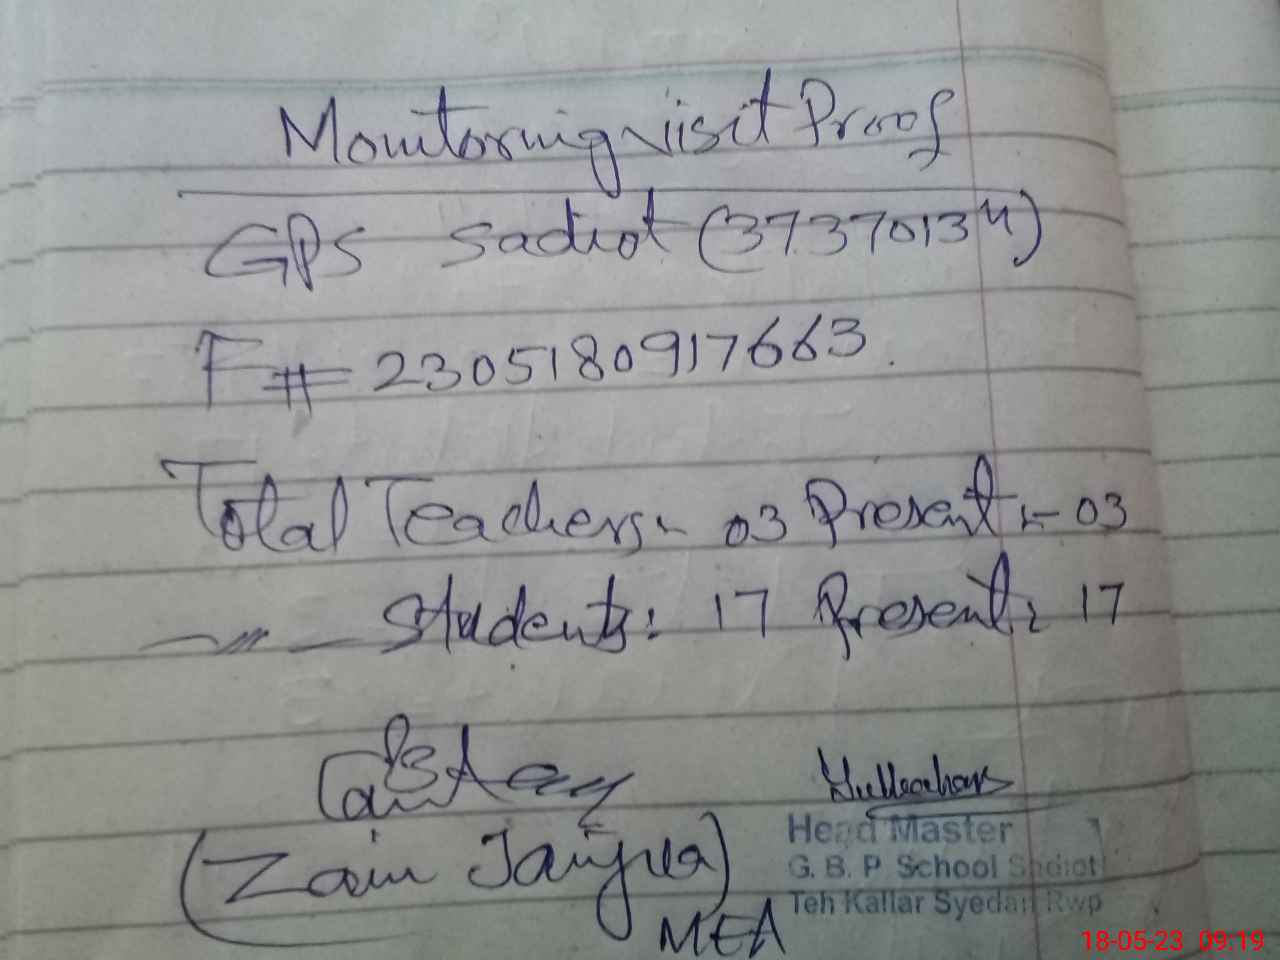 Monitoring visit Proof
GPS Sadiot (37370134)
F# 2305180917663.
Total Teachers:- 03 Present:- 03
-〃- Students: 17 Present: 17
(Zain Janjua)
MEA
Head Master
G. B. P School Sadiot
Teh Kallar Syedan Rwp
18-05-23 09:19